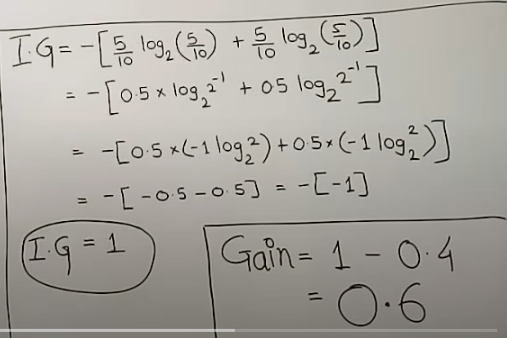 I.G = -[5/10 log₂(5/10) + 5/10 log₂(5/10)]
= -[0.5 × log₂2⁻¹ + 0.5 log₂2⁻¹]
= -[0.5 × (-1 log₂2) + 0.5 × (-1 log₂2)]
= -[-0.5 - 0.5] = -[-1]
I.G = 1
Gain = 1 - 0.4
= 0.6